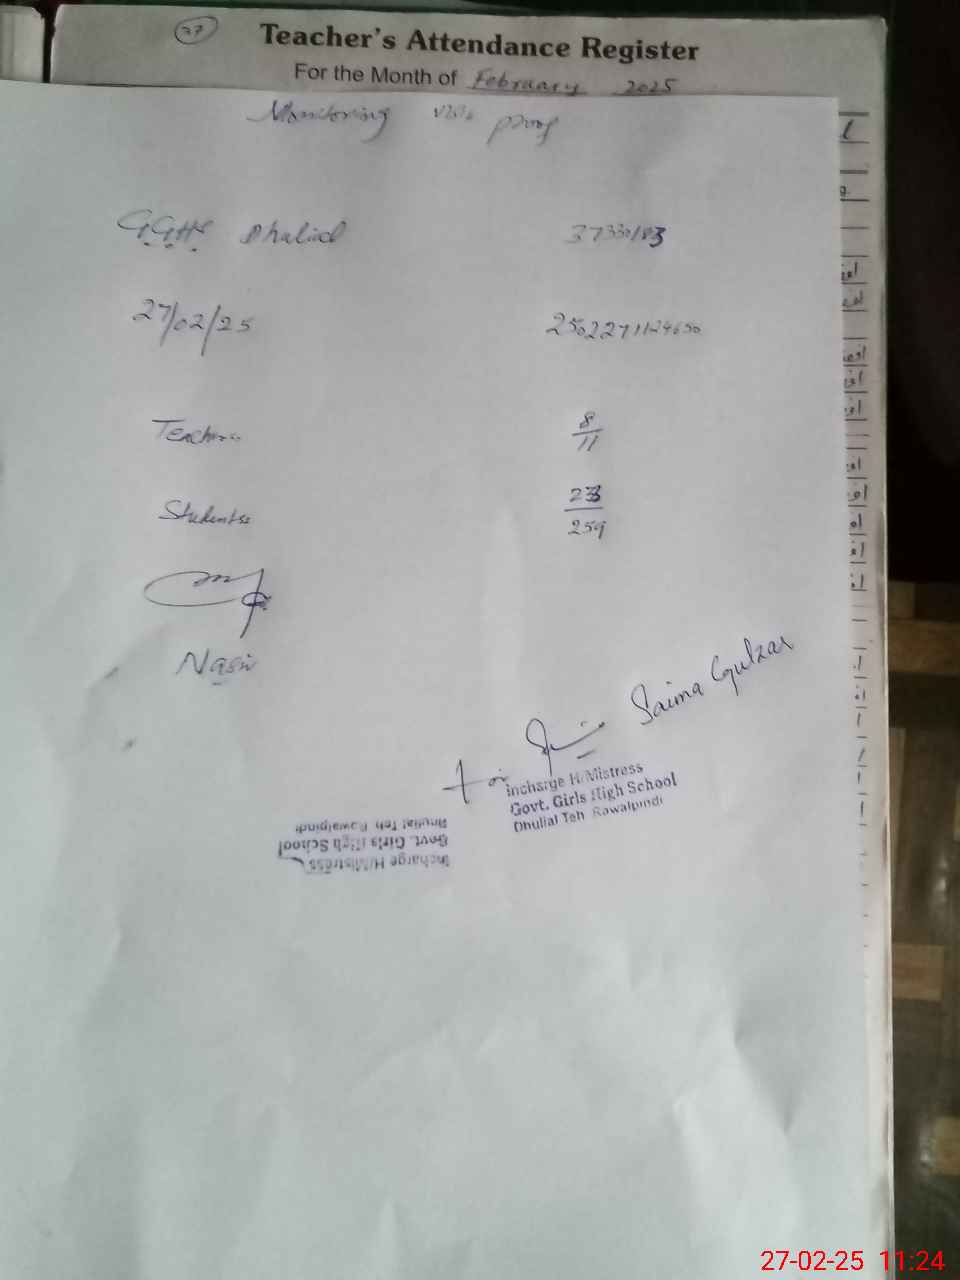 27
Teacher's Attendance Register
For the Month of February 2025
Monitoring visit proof
GGHS Dhulial 37330183
27/02/25
Teachers 8/11
Students 259
Nasir
Saima Gulzar
for
Incharge H/Mistress
Govt. Girls High School
Dhulial Teh Rawalpindi
Incharge H/Mistress
Govt. Girls High School
Dhulial Teh Rawalpindi
27-02-25 11:24